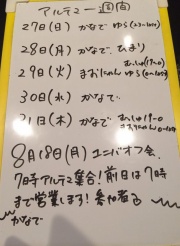 アルテマ一週間
27日(日) かなで ゆら(23-1050)
28日(月) かなで、ひまり
29日(火) まおにゃん ゆら(0-1050)
30日(水) かなで
31日(木) かなで
8月18日(月) ユニバオフ会
7時アルテマ集合!前日は7時
まで営業します!参加者
かなで